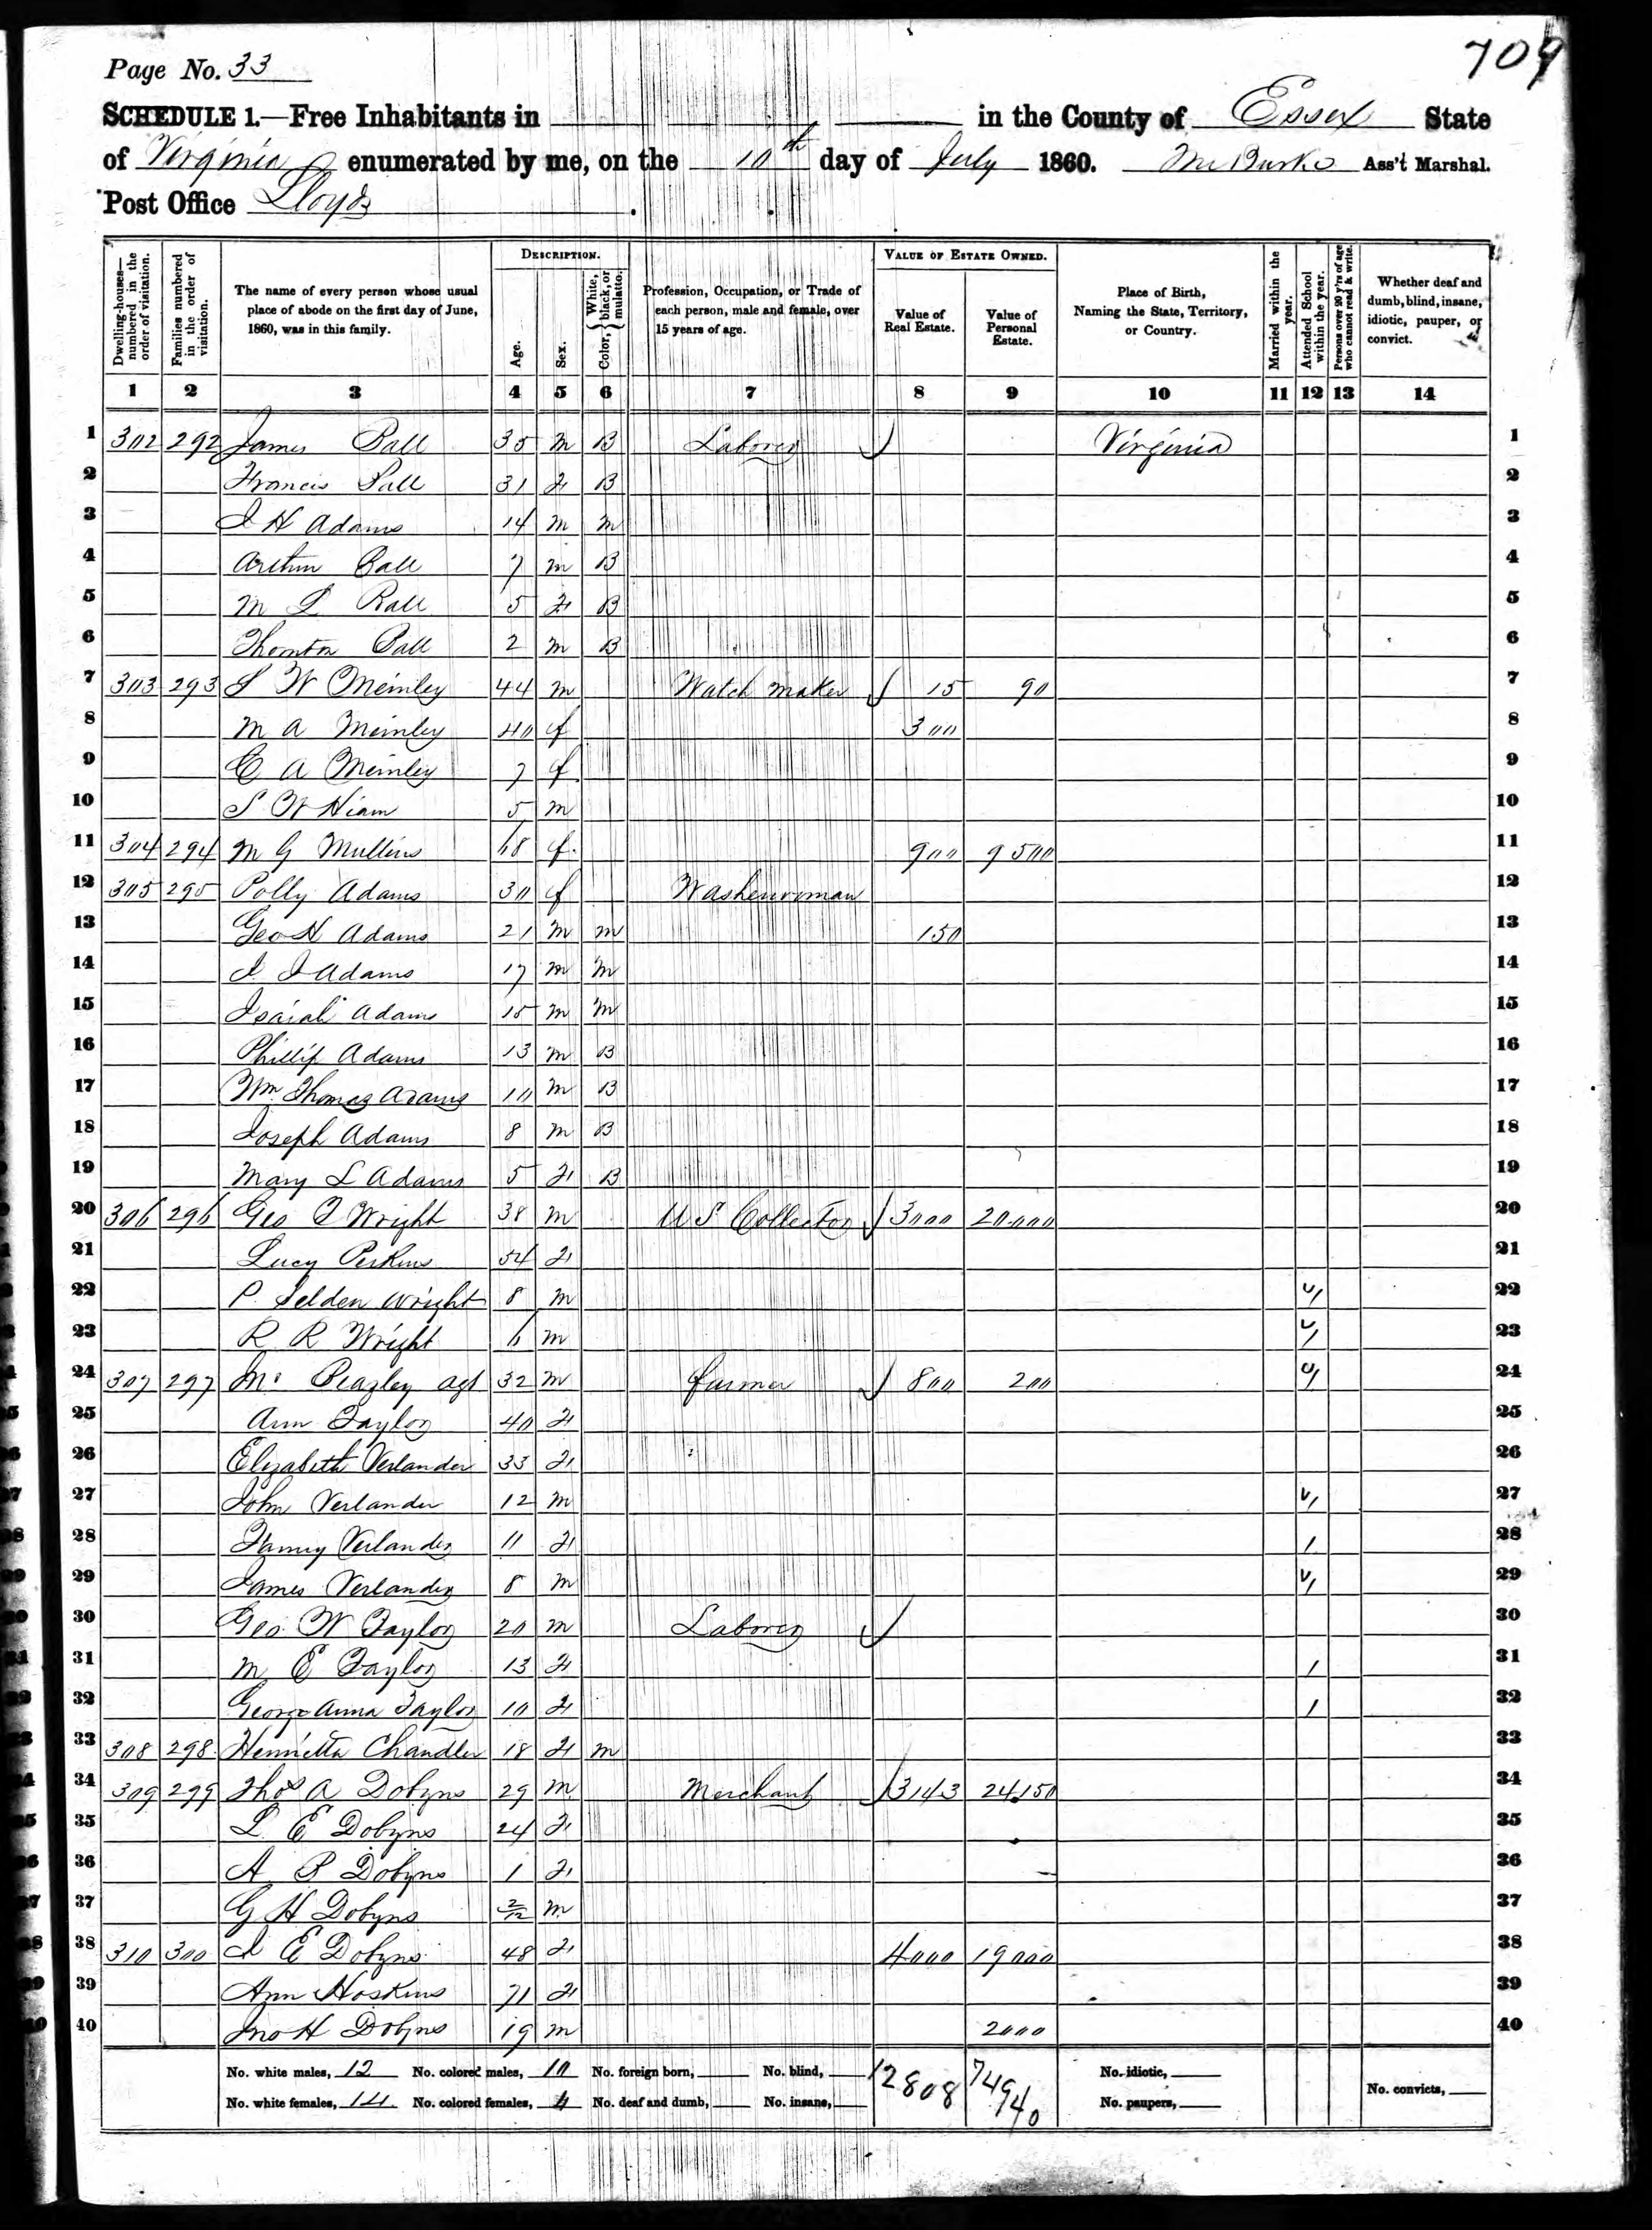 709
Page No. 33
SCHEDULE 1.—Free Inhabitants in in the County of Essex State
of Virginia enumerated by me, on the 10th day of July 1860. Ass't Marshal.
Post Office Lloyds
Dwelling-houses—numbered in the order of visitation.
Families numbered in the order of visitation.
The name of every person whose usual place of abode on the first day of June, 1860, was in this family.
DESCRIPTION.
Age.
Sex.
Color, { White, black, or mulatto.
Profession, Occupation, or Trade of each person, male and female, over 15 years of age.
VALUE OF ESTATE OWNED.
Value of Real Estate.
Value of Personal Estate.
Place of Birth, Naming the State, Territory, or Country.
Married within the year.
Attended School within the year.
Persons over 20 y'rs of age who cannot read & write.
Whether deaf and dumb, blind, insane, idiotic, pauper, or convict.
1 2 3 4 5 6 7 8 9 10 11 12 13 14
1 302 292 James Ball 35 m B Laborer Virginia 1
2 Francis Ball 31 F B 2
3 J H Adams 14 m m 3
4 Arthur Ball 7 m B 4
5 M L Ball 5 F B 5
6 Thornton Ball 2 m B 6
7 303 293 S W 44 m Watch maker 15 90 7
8 M A 40 f 300 8
9 C A 7 f 9
10 S W 5 m 10
11 304 294 M G Mullins 68 f 900 9500 11
12 305 295 Polly Adams 30 f Washerwoman 12
13 Geo H Adams 21 m m 150 13
14 J J Adams 17 m m 14
15 Isaiah Adams 15 m m 15
16 Phillip Adams 13 m B 16
17 Wm Thomas Adams 10 m B 17
18 Joseph Adams 8 m B 18
19 Mary L Adams 5 F B 19
20 306 296 Geo T Wright 38 m U S Collector 3000 20.000 20
21 Lucy Perkins 54 F 21
22 P. Selden Wright 8 m 22
23 R R Wright 6 m 23
24 307 297 Jno Beazley agt 32 m farmer 800 200 24
25 Ann Taylor 40 F 25
26 Elizabeth Verlander 33 F 26
27 John Verlander 12 m 27
28 Fanny Verlander 11 F 28
29 James Verlander 8 m 29
30 Geo. W Taylor 20 m Laborer 30
31 M E Taylor 13 F 31
32 George Anna Taylor 10 F 32
33 308 298 Henrietta Chandler 18 F m 33
34 309 299 Thos A Dobyns 29 m Merchant 3143 24.150 34
35 L. E Dobyns 24 F 35
36 A P Dobyns 1 F 36
37 G H Dobyns 2/12 m 37
38 310 300 J E Dobyns 48 F 4000 19000 38
39 Ann Hoskins 71 F 39
40 Jno H Dobyns 19 m 2000 40
No. white males, 12 No. colored males, 10 No. foreign born, No. blind, 12808 74940 No. idiotic,
No. white females, 14 No. colored females, 4 No. deaf and dumb, No. insane, No. paupers, No. convicts,